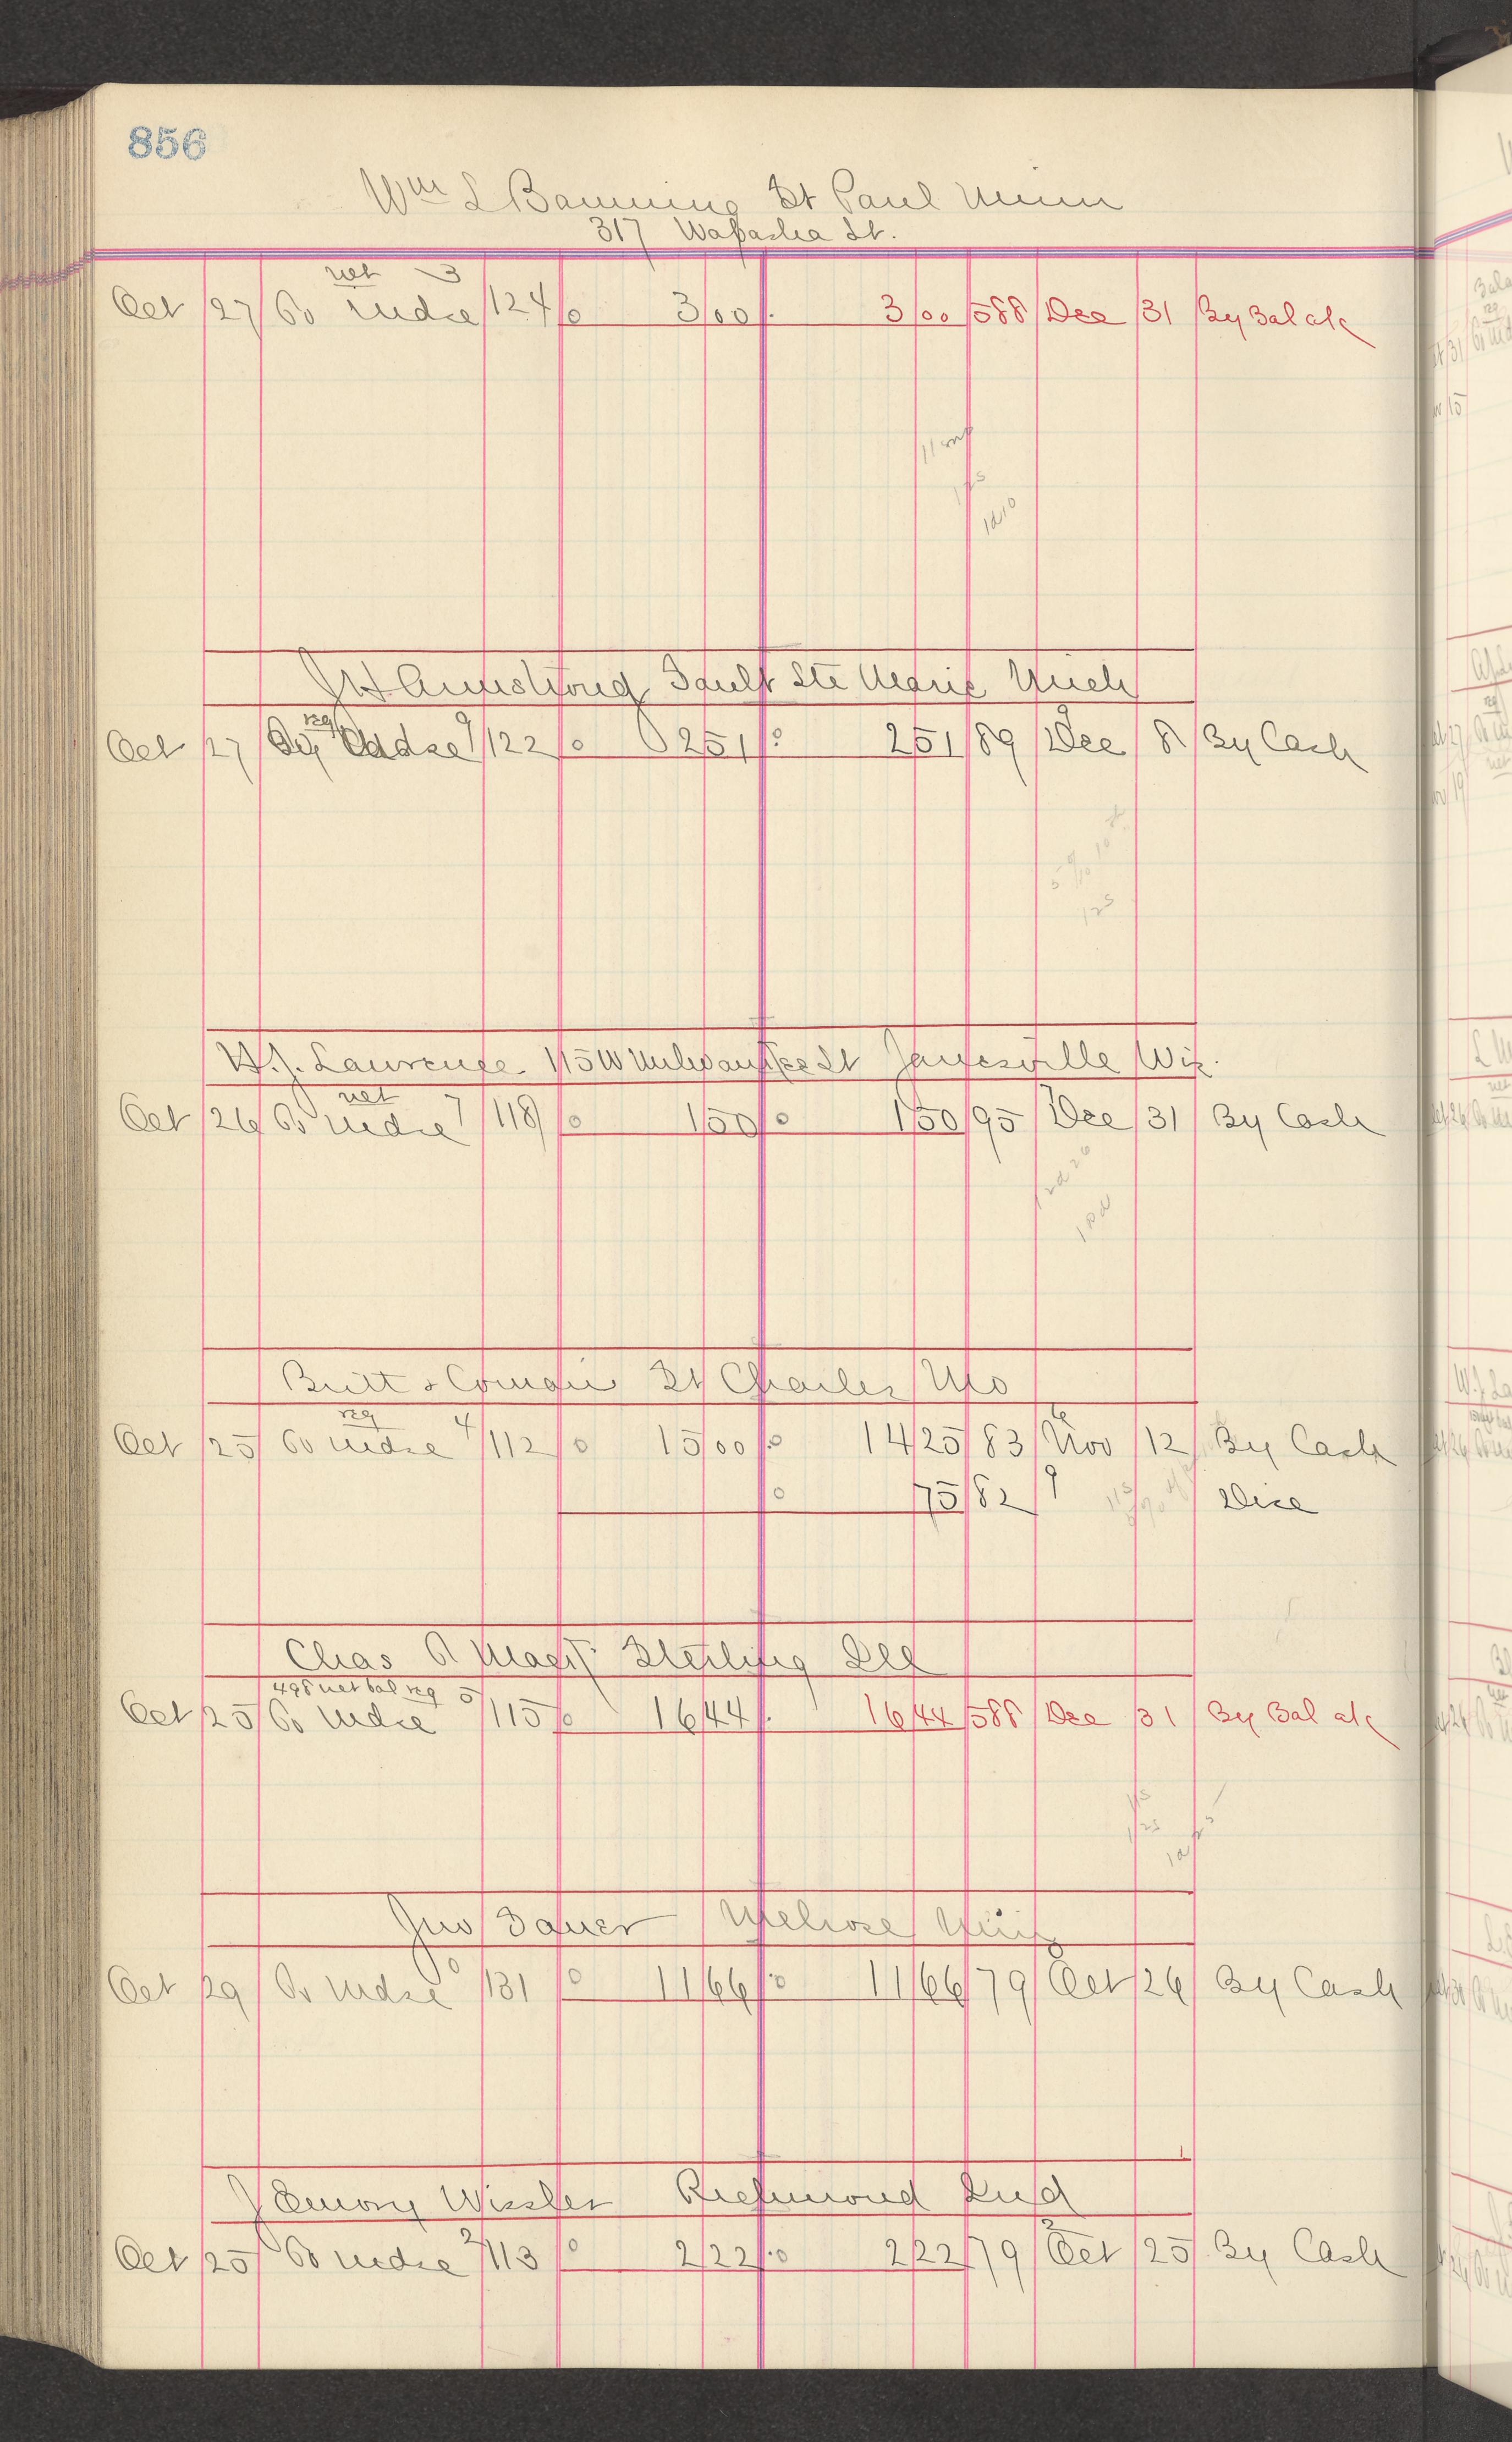 856
Wm L Banning St Paul Minn
317 Wabasha St.
net 3
Oct 27 To Mdse 124 3 00 3 00 588 Dec 31 By Bal a/c
J H Armstrong Sault Ste Marie Mich
reg 9
Oct 27 Mdse 122 2 51 2 51 89 Dec 8 By Cash
W. J. Laurence 115 W Milwaukee St Janesville Wis.
net 7
Oct 26 To Mdse 118 1 50 1 50 95 Dec 31 By Cash
Britt & St Charles Mo
reg 4 6
Oct 25 To Mdse 112 15 00 14 25 83 Nov 12 By Cash
75 82 9 Disc
Chas A Sterling Ill
498 net bal reg 5
Oct 25 To Mdse 115 16 44 16 44 588 Dec 31 By Bal a/c
Jno Sauer Melrose Min
Oct 29 To Mdse 0 131 11 66 11 66 79 Oct 26 By Cash
J Emory Wissler Richmond Ind
Oct 25 To Mdse 2 113 2 22 2 22 79 Oct 25 By Cash